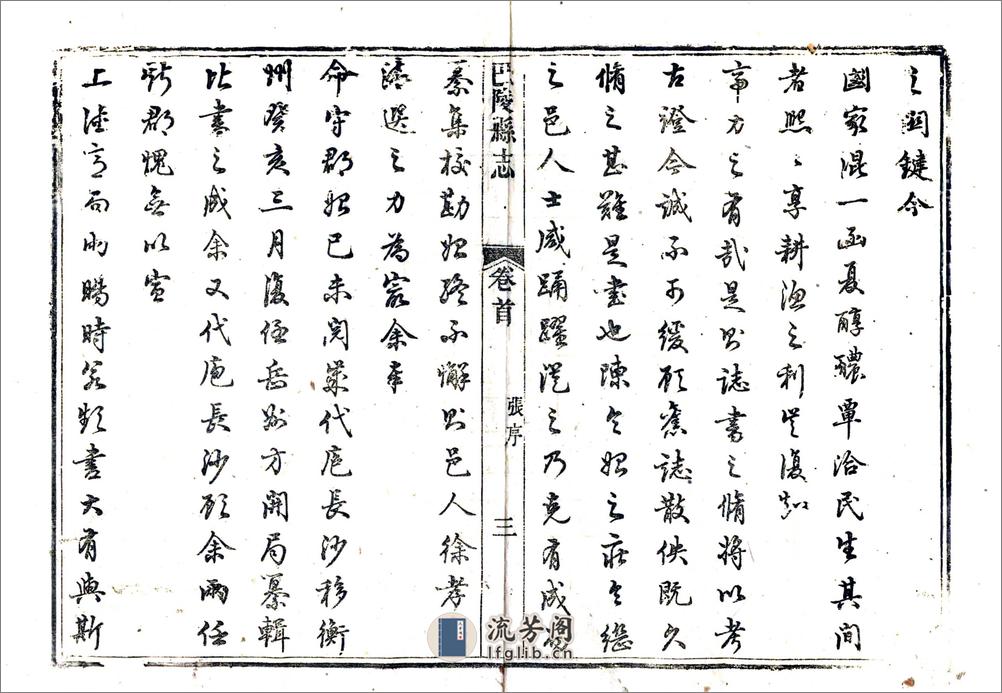 之關鍵今
國家混一函夏醇醲覃洽民生其間
者熙々享耕漁之利豈復知
帝力之有哉是則誌書之脩將以考
古證今誠不可緩顧舊誌散佚既久
脩之甚難是書也陳令始之莊令繼
之邑人士咸踴躍從之乃克有成
巴陵縣志
卷首
張序
三
纂集校勘始終不懈則邑人徐孝
選之力為最余奉
命守郡始己未閱歲代庖長沙移衡
州癸亥三月復任岳方開局纂輯
比書之成余又代庖長沙顧余兩任
斯郡愧無以宣
上德意而雨暘時若頻書大有與斯
流芳阁
lfglib.cn